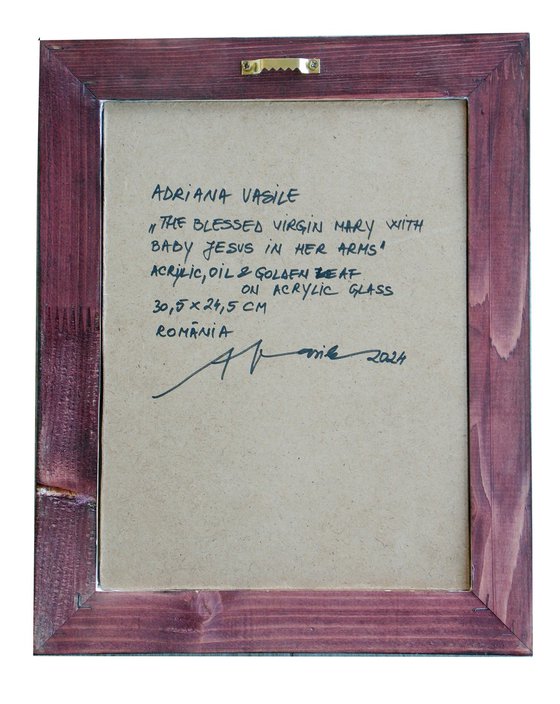 ADRIANA VASILE
„THE BLESSED VIRGIN MARY WITH
BABY JESUS IN HER ARMS"
ACRILIC, OIL & GOLDEN LEAF
ON ACRYLIC GLASS
30,5 x 24,5 CM
ROMÂNIA
A Vasile 2024